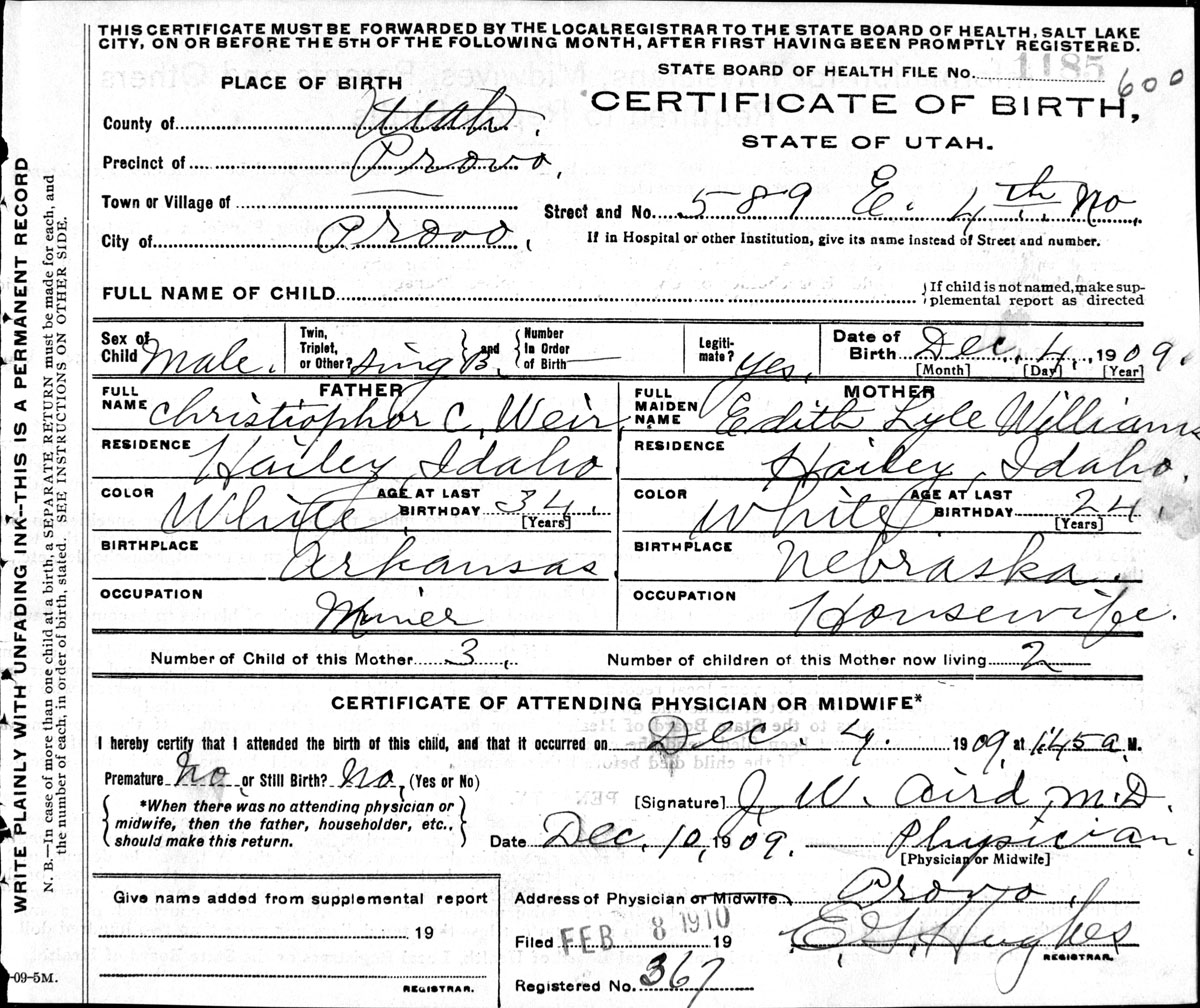 THIS CERTIFICATE MUST BE FORWARDED BY THE LOCALREGISTRAR TO THE STATE BOARD OF HEALTH, SALT LAKE
CITY, ON OR BEFORE THE 5TH OF THE FOLLOWING MONTH, AFTER FIRST HAVING BEEN PROMPTLY REGISTERED.
STATE BOARD OF HEALTH FILE No. 1185 600
PLACE OF BIRTH
CERTIFICATE OF BIRTH,
STATE OF UTAH.
County of Utah.
Precinct of Provo,
Town or Village of
Street and No. 589 E. 4th No.
City of Provo,
If in Hospital or other Institution, give its name instead of Street and number.
FULL NAME OF CHILD
If child is not named, make sup-
plemental report as directed
Sex of Child Male.
Twin, Triplet, or Other? Sing B.
and Number In Order of Birth —
Legiti-mate? Yes.
Date of Birth Dec. 4, 1909.
[Month] [Day] [Year]
FATHER
FULL NAME Christiophor C. Weir
MOTHER
FULL MAIDEN NAME Edith Lyle Williams
RESIDENCE Hailey, Idaho
RESIDENCE Hailey, Idaho.
COLOR White AGE AT LAST BIRTHDAY 34. [Years]
COLOR White AGE AT LAST BIRTHDAY 24. [Years]
BIRTHPLACE Arkansas.
BIRTHPLACE Nebraska.
OCCUPATION Miner
OCCUPATION Housewife.
Number of Child of this Mother 3.
Number of children of this Mother now living 2
CERTIFICATE OF ATTENDING PHYSICIAN OR MIDWIFE*
I hereby certify that I attended the birth of this child, and that it occurred on Dec. 4. 1909, at 1:45 a. M.
Premature No or Still Birth? No. (Yes or No)
*When there was no attending physician or
midwife, then the father, householder, etc.,
should make this return.
[Signature] J. W. Aird, M.D.
Date Dec. 10, 1909. Physician.
[Physician or Midwife]
Give name added from supplemental report
19
REGISTRAR.
Address of Physician or Midwife Provo.
Filed FEB 8 1910 19
Hughes
REGISTRAR.
Registered No. 367
WRITE PLAINLY WITH UNFADING INK—THIS IS A PERMANENT RECORD
N. B.—In case of more than one child at a birth, a SEPARATE RETURN must be made for each, and
the number of each, in order of birth, stated. SEE INSTRUCTIONS ON OTHER SIDE.
-09-5M.